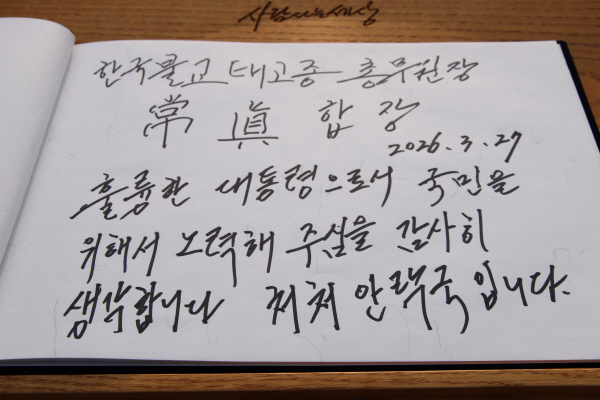 사람사는세상
한국불교 태고종 총무원장
常眞 합장
2026.3.27
훌륭한 대통령으로서 국민을
위해서 노력해 주심을 감사히
생각합니다 처처안락국입니다.